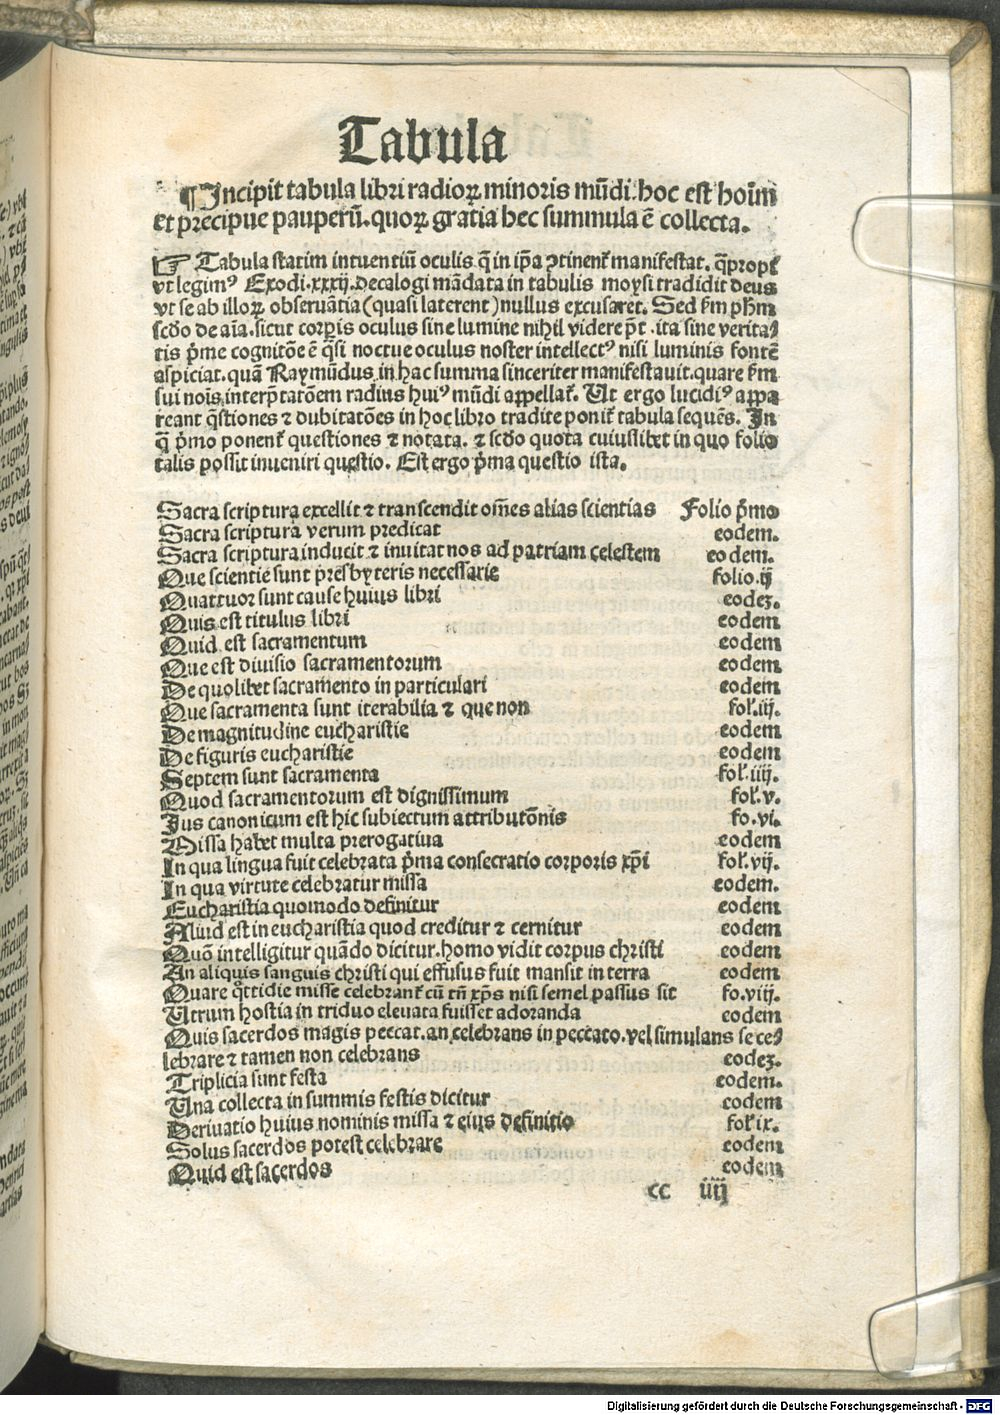 Tabula
¶Incipit tabula libri radioꝝ minoris mūdi. hoc est hoīm
et precipue pauperū. quoꝝ gratia hec summula ē collecta.
☞ Tabula statim intuentiū oculis q̄ in ip̄a ꝯtinenť manifestat. q̄propť
vt legimꝰ Exodi. xxxij. Decalogi mādata in tabulis moysi tradidit deus
vt se ab illoꝝ obseruātia (quasi laterent) nullus excusaret. Sed ẜm ph̄m
scḋo de aīa. sicut corꝑis oculus sine lumine nihil videre pōt. ita sine verita⸗
tis pͥme cognitōe ē q̄si noctue oculus noster intellectꝰ nisi luminis fontē
aspiciat. quā Raymūdus in hac summa sinceriter manifestauit. quare ẜm
sui nois̄ interp̄tatōem radius huiꝰ mūdi appellať. Ut ergo lucidiꝰ appa
reant q̄stiones ⁊ dubitatōes in hoc libro tradite poniť tabula sequēs. In
q̄ pͥmo ponenť questiones ⁊ notata. ⁊ scḋo quota cuiuslibet in quo folio
talis possit inueniri questio. Est ergo pͥma questio ista.
Sacra scriptura excellit ⁊ transcendit om̄es alias scientias Folio pͥmo
Sacra scriptura verum predicat eodem.
Sacra scriptura inducit ⁊ inuitat nos ad patriam celestem eodem.
Que scientie sunt presbyteris necessarie folio. ij
Quattuor sunt cause huius libri eodeꝫ.
Quis est titulus libri eodem
Quid est sacramentum eodem
Que est diuisio sacramentorum eodem
De quolibet sacramento in particulari eodem
Que sacramenta sunt iterabilia ⁊ que non fol. iij.
De magnitudine eucharistie eodem
De figuris eucharistie eodem
Septem sunt sacramenta fol. iiij.
Quod sacramentorum est dignissimum fol. v.
Jus canonicum est hic subiectum attributōnis fo. vi.
Missa habet multa prerogatiua eodem
In qua lingua fuit celebrata pͥma consecratio corporis xp̄i fol. vij.
In qua virtute celebratur missa eodem.
Eucharistia quomodo definitur eodem
Aliud est in eucharistia quod creditur ⁊ cernitur eodem
Quō intelligitur quādo dicitur. homo vidit corpus christi eodem
An aliquis sanguis christi qui effusus fuit mansit in terra eodem
Quare q̊ttidie misse celebranť cū tn̄ xp̄s nisi semel passus sit fo. viij.
Utrum hostia in triduo eleuata fuisset adoranda eodem
Quis sacerdos magis peccat. an celebrans in peccato. vel simulans se ce⸗
lebrare ⁊ tamen non celebrans eodeꝫ.
Triplicia sunt festa eodem.
Una collecta in summis festis dicitur eodem
Deriuatio huius nominis missa ⁊ eius definitio fol. ix.
Solus sacerdos potest celebrare eodem
Quid est sacerdos eodem
cc iiij
Digitalisierung gefördert durch die Deutsche Forschungsgemeinschaft - DFG